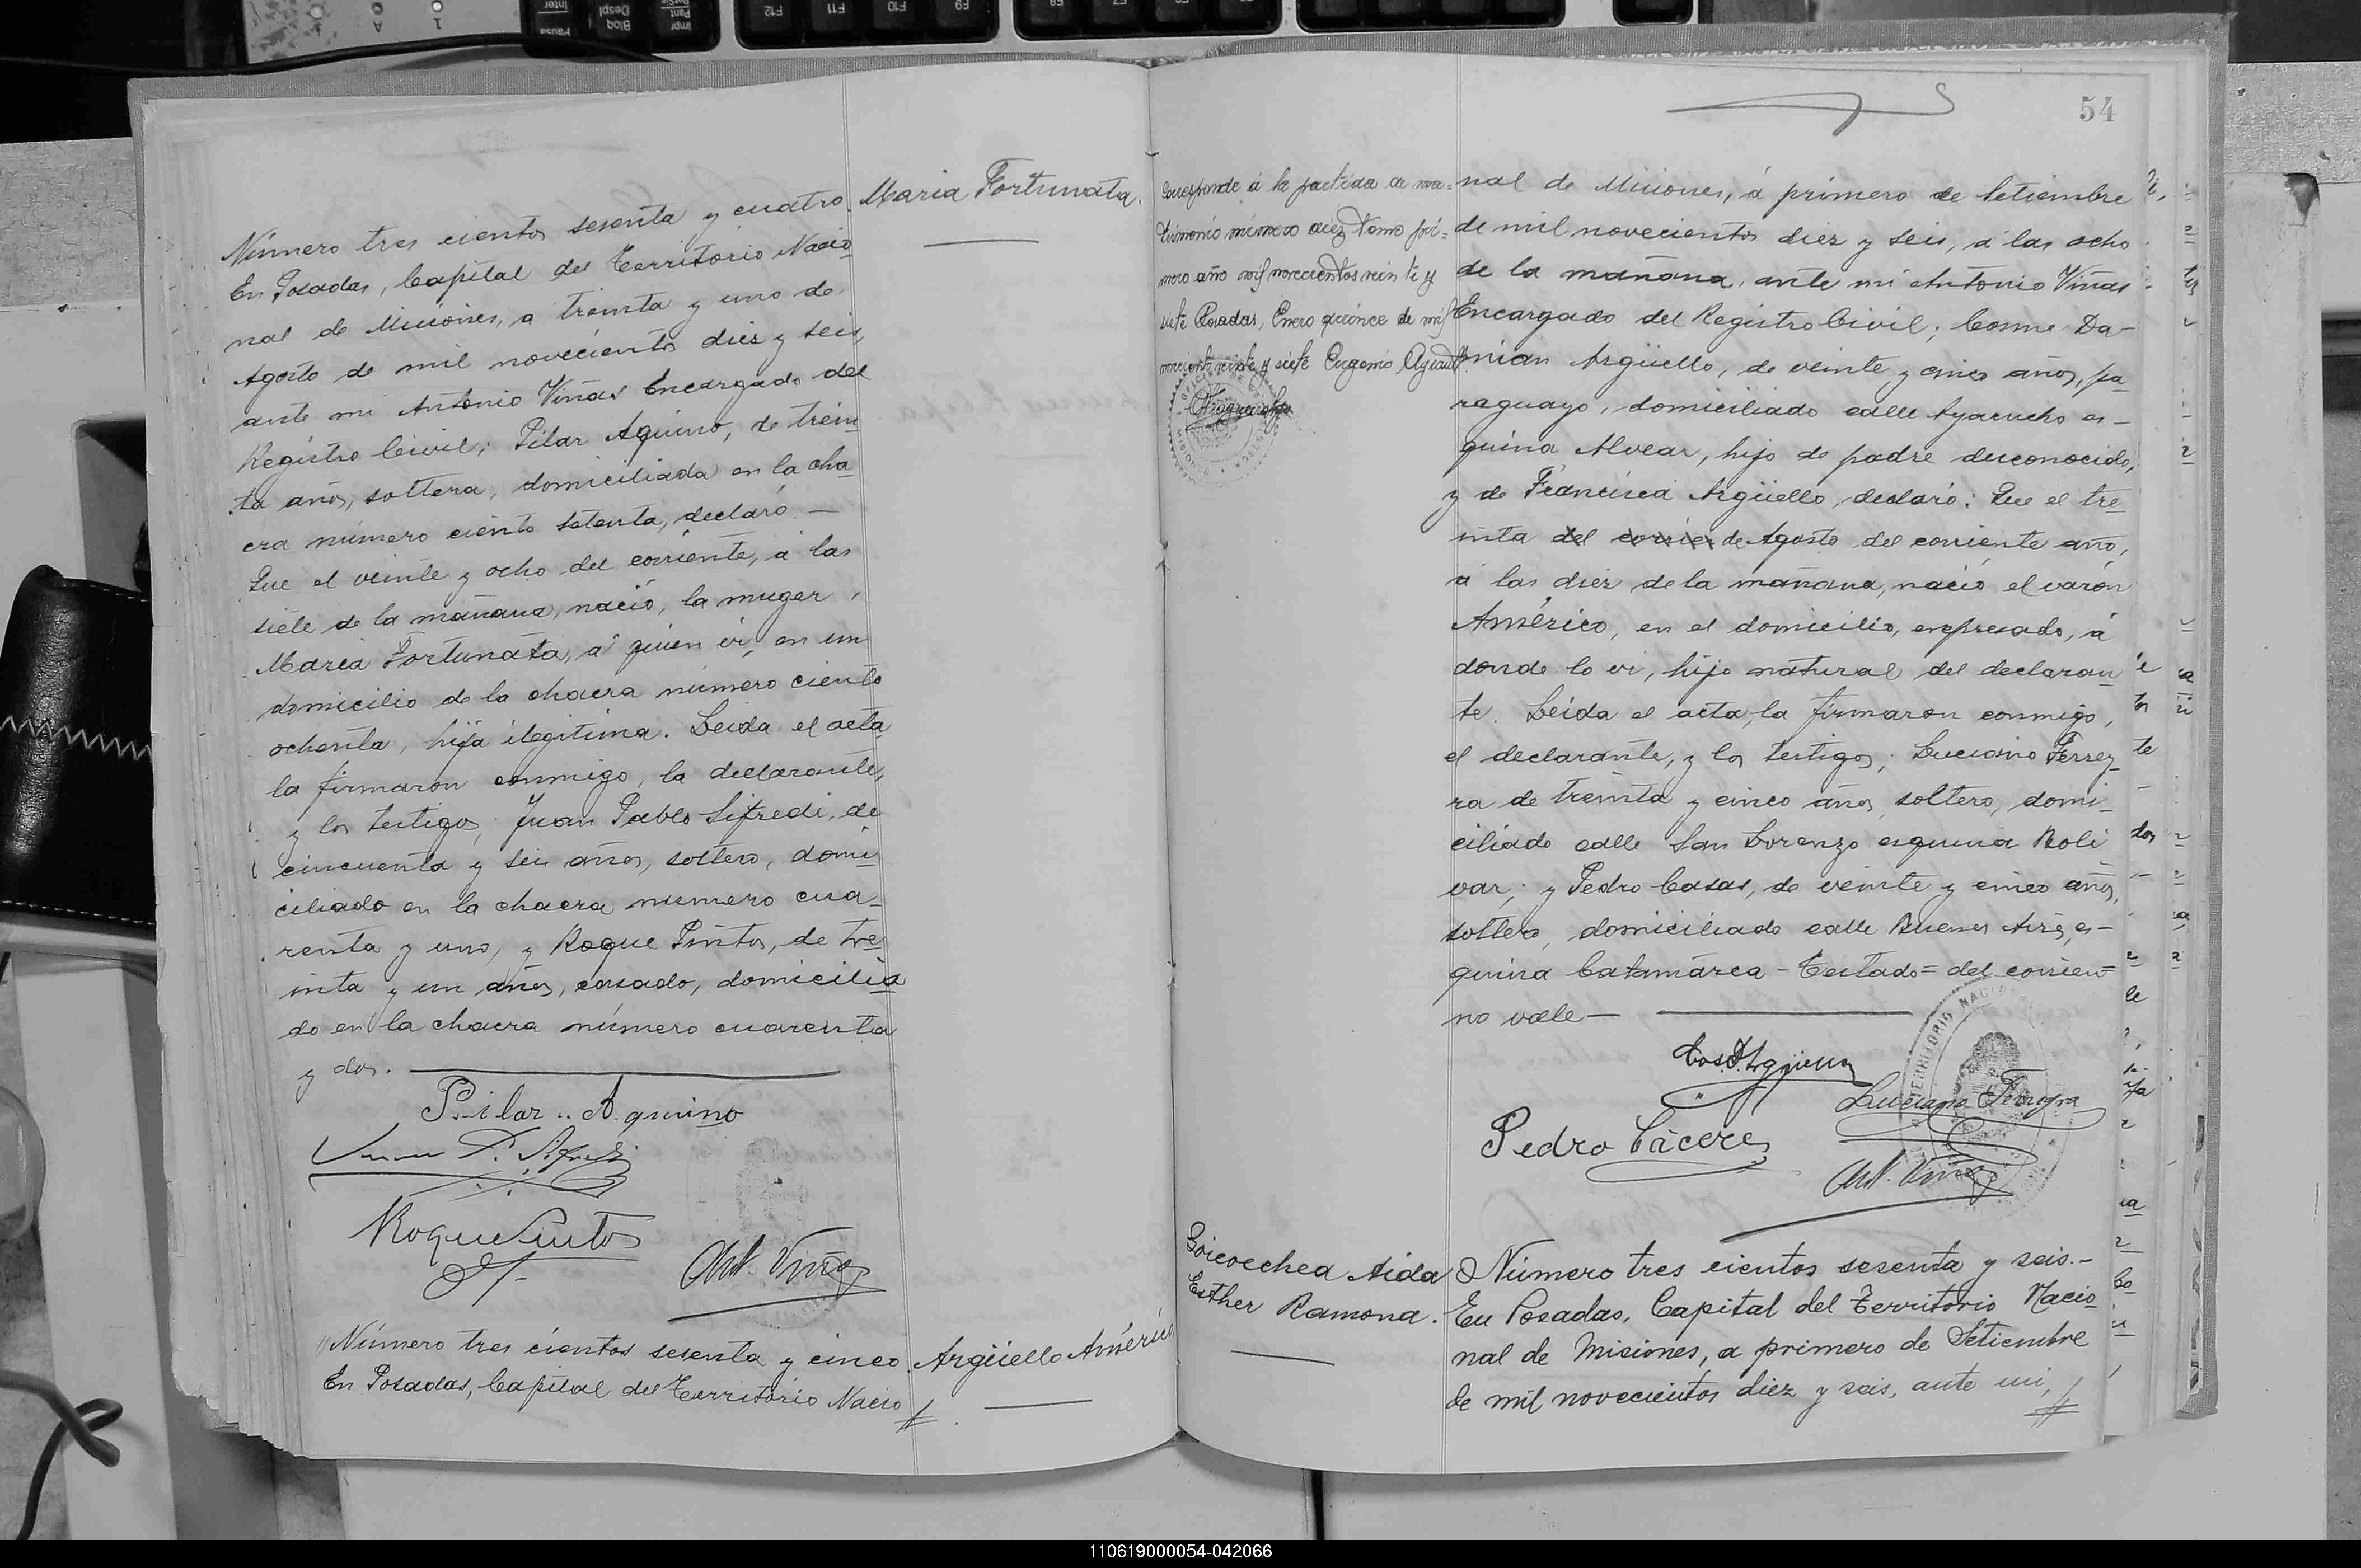 Número tres cientos sesenta y cuatro.
En Posadas, Capital del Territorio Nacio
nal de Misiones, a treinta y uno de
Agosto de mil novecientos diez y seis,
ante mi Antonio Viñas Encargado del
Registro Civil; Pilar Aquino, de trein
ta años, soltera, domiciliada en la cha
cra número ciento setenta, declaró —
Que el veinte y ocho del corriente, á las
siete de la mañana, nació, la muger,
Maria Fortunata, á quien vi, en un
domicilio de la chacra número ciento
ochenta, hija ilegitima. Leida el acta
la firmaron conmigo, la declarante,
y los testigos; Juan Pablo Sifredi, de
cincuenta y seis años, soltero, domi
ciliado en la chacra numero cua-
renta y uno, y Roque Pintos, de tre
inta y un años, casado, domicilia
do en la chacra número cuarenta
y dos.
Pilar A. quino
Roque Pintos
Ant. Viñas
Número tres cientos sesenta y cinco.
En Posadas, Capital del Territorio Nacio
Maria Fortunata.
Argüello Américo
54
Corresponde á la partida de ma-
trimonio número diez Tomo pri-
mero año mil novecientos veinte y
siete Posadas, Enero quince de mil
novecientos veinte y siete Eugenio
nal de Misiones, á primero de Setiembre
de mil novecientos diez y seis, a las ocho
de la mañana, ante mi Antonio Viñas
Encargado del Registro Civil; Cosme Da-
mian Argüello, de veinte y cinco años, pa
raguayo, domiciliado calle Ayacucho es-
quina Alvear, hijo de padre desconocido,
y de Francisca Argüello, declaró: Que el tre
inta del corrien de Agosto del corriente año,
á las diez de la mañana, nació el varón
Américo, en el domicilio, expresado, á
donde lo vi, hijo natural del declaran
te. Leida el acta, la firmaron conmigo,
el declarante, y los testigos; Luciano Ferrey
ra de treinta y cinco años, soltero, domi
ciliado calle San Lorenzo esquina Boli
var; y Pedro Casas, de veinte y cinco años,
soltero, domiciliado calle Buenos Aires, es-
quina Catamarca - Testado = del corrien =
no vale —
Cos. D. Argüello
Luciano Ferreyra
Pedro Cáceres
Ant. Viñas
Goicoechea Aida
Esther Ramona.
Número tres cientos sesenta y seis.-
En Posadas, Capital del Territorio Nacio
nal de Misiones, a primero de Setiembre
de mil novecientos diez y seis, ante mi,
110619000054-042066